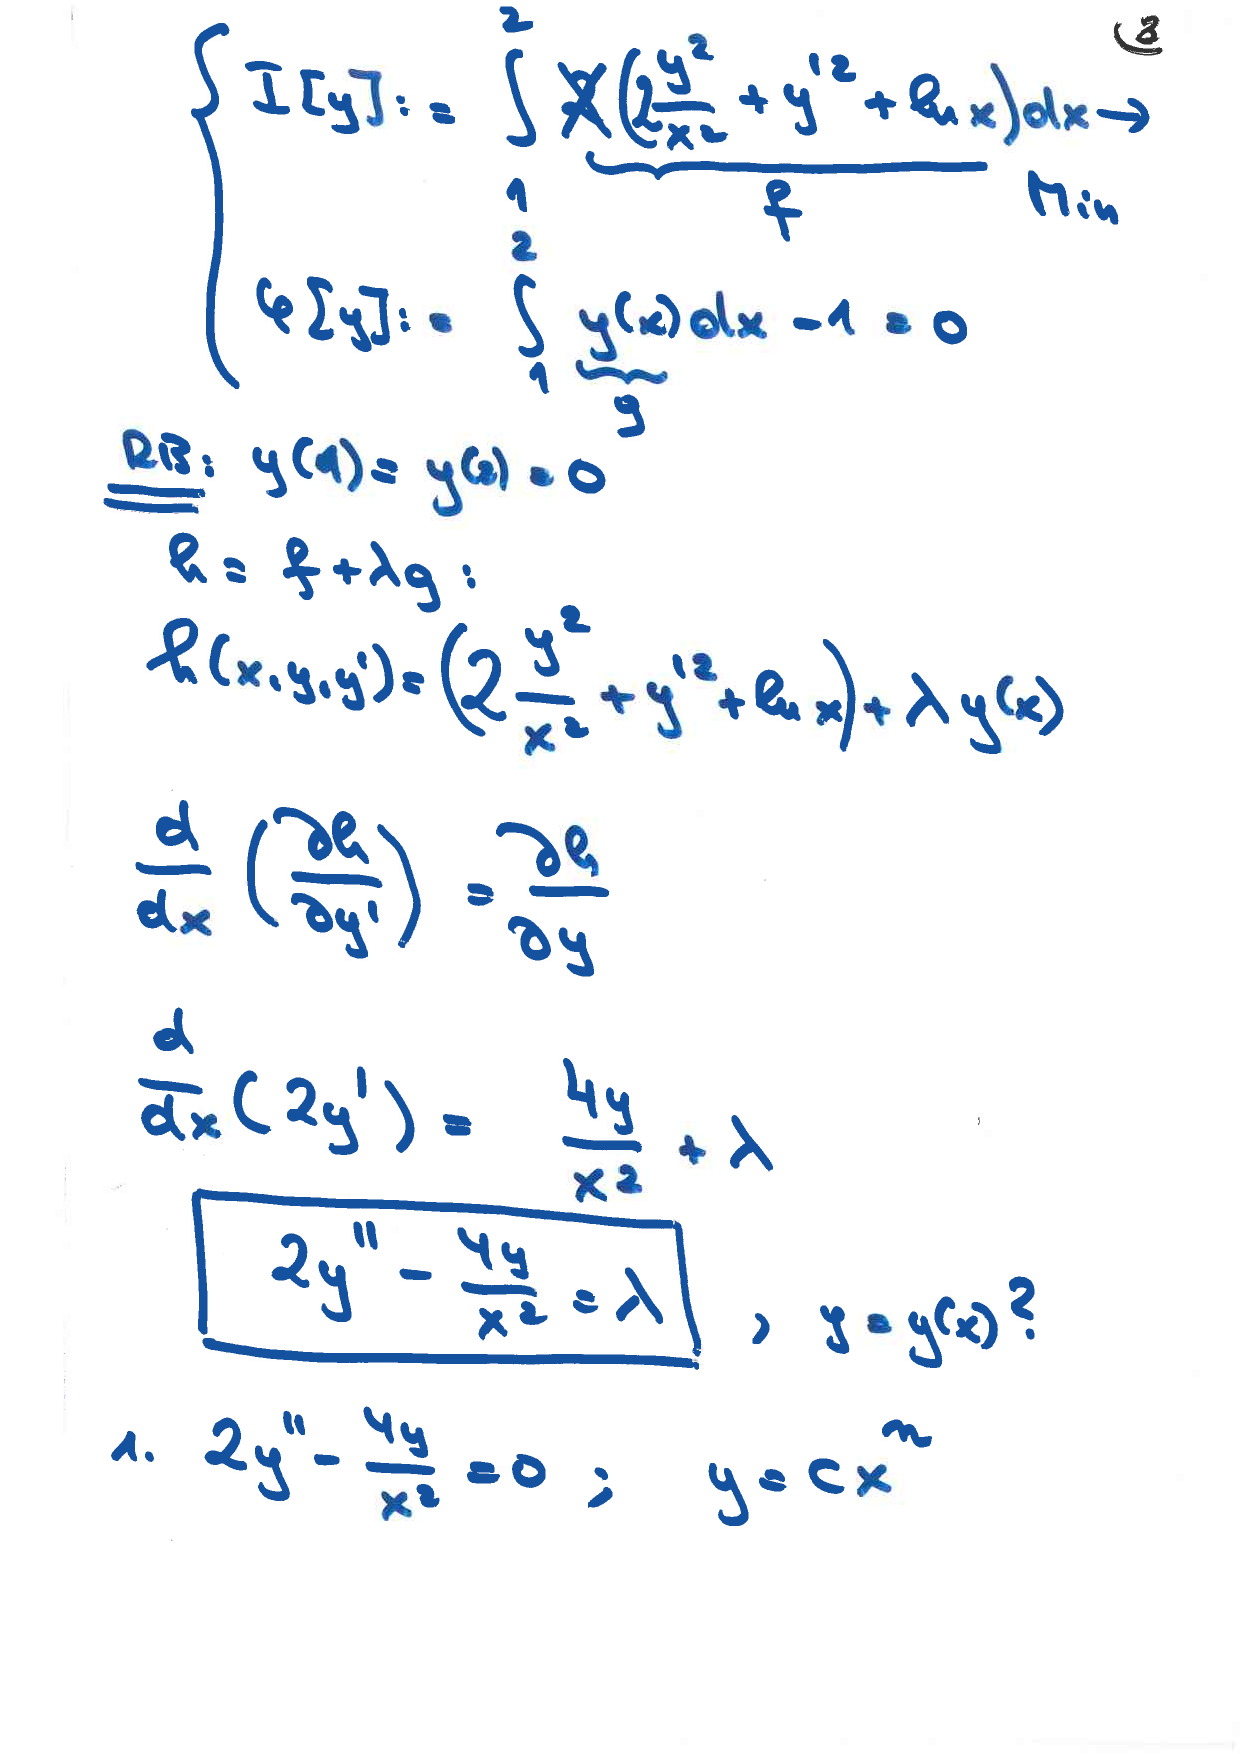 8
I[y] := ∫₁² (2 y²/x² + y'² + ln x) dx → Min
f
φ[y] := ∫₁² y(x) dx - 1 = 0
g
RB: y(1) = y(2) = 0
h = f + λg :
h(x, y, y') = (2 y²/x² + y'² + ln x) + λ y(x)
d/dx (∂h/∂y') = ∂h/∂y
d/dx (2y') = 4y/x² + λ
2y'' - 4y/x² = λ , y = y(x) ?
1. 2y'' - 4y/x² = 0 ; y = c xⁿ